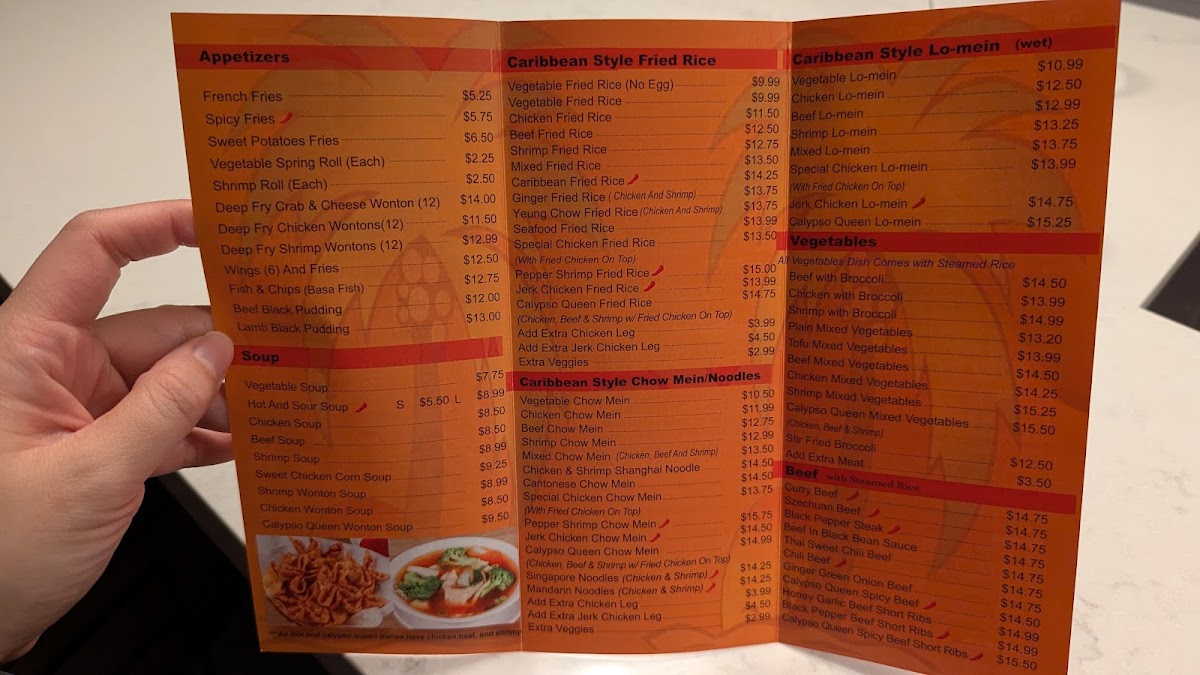 Appetizers
French Fries $5.25
Spicy Fries $5.75
Sweet Potatoes Fries $6.50
Vegetable Spring Roll (Each) $2.25
Shrimp Roll (Each) $2.50
Deep Fry Crab & Cheese Wonton (12) $14.00
Deep Fry Chicken Wontons(12) $11.50
Deep Fry Shrimp Wontons (12) $12.99
Wings (6) And Fries $12.50
Fish & Chips (Basa Fish) $12.75
Beef Black Pudding $12.00
Lamb Black Pudding $13.00
Soup
Vegetable Soup $7.75
Hot And Sour Soup S $5.50 L $8.99
Chicken Soup $8.50
Beef Soup $8.50
Shrimp Soup $8.99
Sweet Chicken Corn Soup $9.25
Shrimp Wonton Soup $8.99
Chicken Wonton Soup $8.50
Calypso Queen Wonton Soup $9.50
***All mix and calypso queen dishes have chicken, beef, and shrimp
Caribbean Style Fried Rice
Vegetable Fried Rice (No Egg) $9.99
Vegetable Fried Rice $9.99
Chicken Fried Rice $11.50
Beef Fried Rice $12.50
Shrimp Fried Rice $12.75
Mixed Fried Rice $13.50
Caribbean Fried Rice $14.25
Ginger Fried Rice ( Chicken And Shrimp) $13.75
Yeung Chow Fried Rice (Chicken And Shrimp) $13.75
Seafood Fried Rice $13.99
Special Chicken Fried Rice $13.50
(With Fried Chicken On Top)
Pepper Shrimp Fried Rice $15.00
Jerk Chicken Fried Rice $13.99
Calypso Queen Fried Rice $14.75
(Chicken, Beef & Shrimp w/ Fried Chicken On Top)
Add Extra Chicken Leg $3.99
Add Extra Jerk Chicken Leg $4.50
Extra Veggies $2.99
Caribbean Style Chow Mein/Noodles
Vegetable Chow Mein $10.50
Chicken Chow Mein $11.99
Beef Chow Mein $12.75
Shrimp Chow Mein $12.99
Mixed Chow Mein (Chicken, Beef And Shrimp) $13.50
Chicken & Shrimp Shanghai Noodle $14.50
Cantonese Chow Mein $14.50
Special Chicken Chow Mein $13.75
(With Fried Chicken On Top)
Pepper Shrimp Chow Mein $15.75
Jerk Chicken Chow Mein $14.50
Calypso Queen Chow Mein $14.99
(Chicken, Beef & Shrimp w/ Fried Chicken On Top)
Singapore Noodles (Chicken & Shrimp) $14.25
Mandarin Noodles (Chicken & Shrimp) $14.25
Add Extra Chicken Leg $3.99
Add Extra Jerk Chicken Leg $4.50
Extra Veggies $2.99
Caribbean Style Lo-mein (wet)
Vegetable Lo-mein $10.99
Chicken Lo-mein $12.50
Beef Lo-mein $12.99
Shrimp Lo-mein $13.25
Mixed Lo-mein $13.75
Special Chicken Lo-mein $13.99
(With Fried Chicken On Top)
Jerk Chicken Lo-mein $14.75
Calypso Queen Lo-mein $15.25
Vegetables
All Vegetables Dish Comes with Steamed Rice
Beef with Broccoli $14.50
Chicken with Broccoli $13.99
Shrimp with Broccoli $14.99
Plain Mixed Vegetables $13.20
Tofu Mixed Vegetables $13.99
Beef Mixed Vegetables $14.50
Chicken Mixed Vegetables $14.25
Shrimp Mixed Vegetables $15.25
Calypso Queen Mixed Vegetables $15.50
(Chicken, Beef & Shrimp)
Stir Fried Broccoli $12.50
Add Extra Meat $3.50
Beef with Steamed Rice
Curry Beef $14.75
Szechuan Beef $14.75
Black Pepper Steak $14.75
Beef In Black Bean Sauce $14.75
Thai Sweet Chili Beef $14.75
Chili Beef $14.75
Ginger Green Onion Beef $14.75
Calypso Queen Spicy Beef $14.50
Honey Garlic Beef Short Ribs $14.99
Black Pepper Beef Short Ribs $14.99
Calypso Queen Spicy Beef Short Ribs $15.50